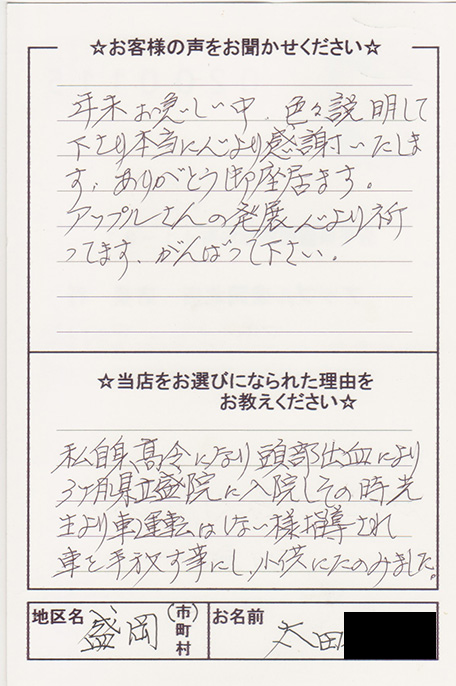 ☆お客様の声をお聞かせください☆
年末お急しい中、色々説明して
下さり本当に心より感謝いたしま
す。ありがとう御座居ます。
アップルさんの発展心より祈
ってます、がんばって下さい。
☆当店をお選びになられた理由を
お教えください☆
私自身、高令になり頭部出血により
3ヶ月県立盛院に入院しその時先
生より車運転はしない様指導され
車を手放す事にし、小供にたのみました。
地区名 盛岡 (市)町村
お名前 太田